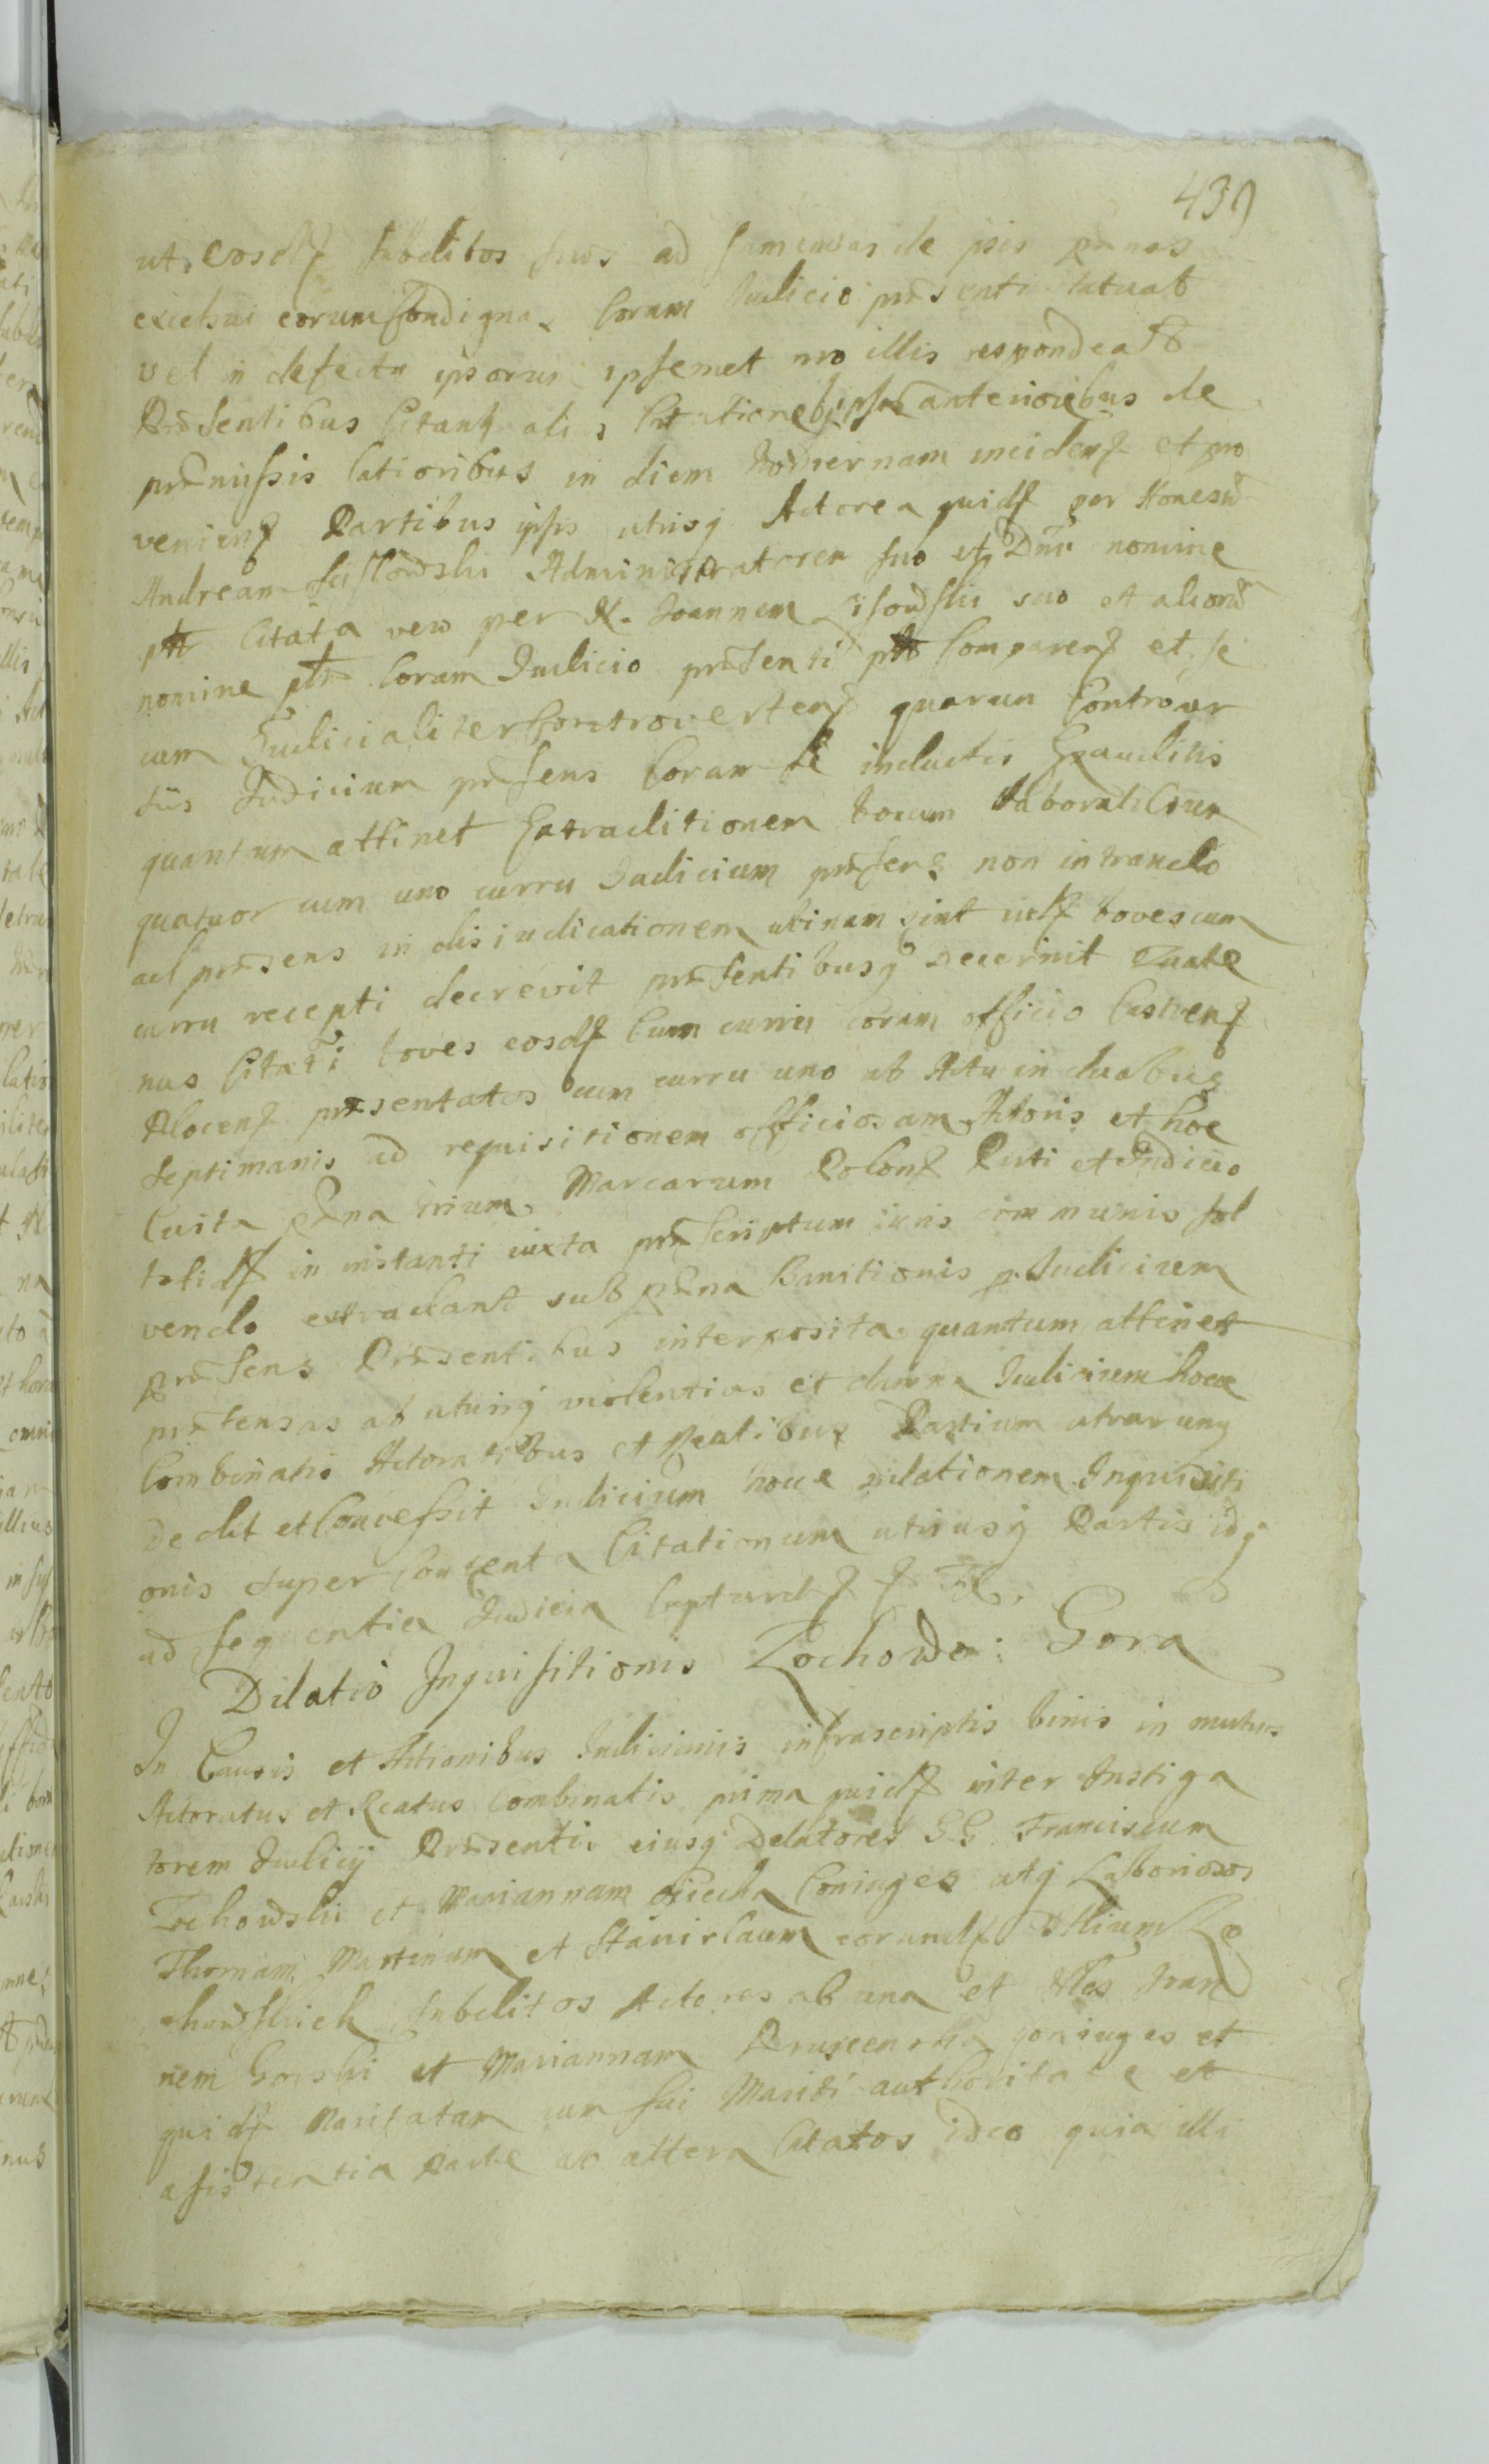 439
ut eosdꝫ subditos suos ad sumendas de ipsis pœnas
excessui eorum condignas Coram Iudicio præsenti statuat
vel in defectu ipsorum ipsemet pro illis respondeat
Præsentibus Citanꝫ alijs Citationebꝫ anterioribus de
præmissis latioribus in diem hodiernam incidenꝫ et pro
venienꝫ Partibus ipsis utrisqꝫ Actorea quidꝫ per Honestũ
Andream Administratorem suo et Dñi nomine
ptt Citata vero per N. Joannem suo et aliorũ
nomine ptt Coram Iudicio præsenti ptt Comparenꝫ et se
cum Iudicialiter Controvertenꝫ quarum Controver
sijs Iudicium præsens Coram se inductis Exauditis
quantum attinet Extraditionem boum laboratiliũm
quatuor cum uno curru Iudicium præsens non intrando
ad præsens in disiudicationem ubinam sint iidꝫ boves cum
curru recepti decrevit præsentibusqꝫ decernit Quate
nus Citati boves eosdꝫ Cum curru coram officio Castrenꝫ
Plocenꝫ præsentatos cum curru uno ab Actu in duabus
septimanis ad requisitionem officiosam Actoris et hoc
luita pœna trium Marcarum Polonꝫ Parti et Iudicio
totidꝫ in instanti iuxta præscriptum iuris communis sol
vendo extradant sub pœna Banitionis p. Iudicium
præsens Præsentibus interposita quantum attinet
prætensas ab utrinqꝫ violentias et damna Iudicium hocce
Combinatis Actoratibus et Reatibus Partium utrarumqꝫ
Dedit et Concessit Iudicium hocce dilationem Inquisiti
onis super Contenta Citationum utriusqꝫ Partis idqꝫ
ad sequentia Iudicia
Dilatio Inquisitionis Zochowo: Gora
In Causis et Actionibus Iudiciarijs infrascriptis binis in mutuo
Actoratus et Reatus Combinatis prima quidꝫ inter Instiga
torem Iudicij Præsentis eiusqꝫ Delatores G.G. Franciscum
Zochowski et Mariannam Coniuges atqꝫ Laboriosos
Thomam Martinum et Stanislaum eorundꝫ Zo
chowskich subditos Actores ab una et Joan
nem Gorski et Mariannam coniuges et
quidꝫ Maritatam cum sui Mariti authoritate et
asistentia Parte ab altera Citatos ideo quia illi